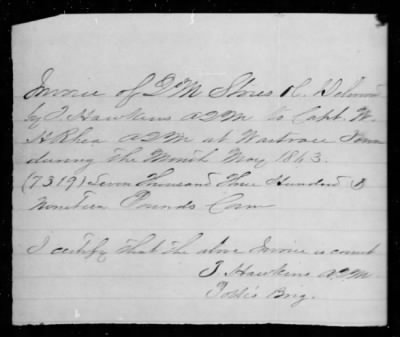 Invoice of Q M Stores &C. Delivered
by J. Hawkins A Q M to Capt. W.
H Rhea A Q M at Wartrace Tenn
during the Month May 1863.
(7319) Seven Thousand Three Hundred &
Nineteen Pounds Corn
I certify that the above Invoice is correct
J. Hawkins A Q M
Polk's Brig.